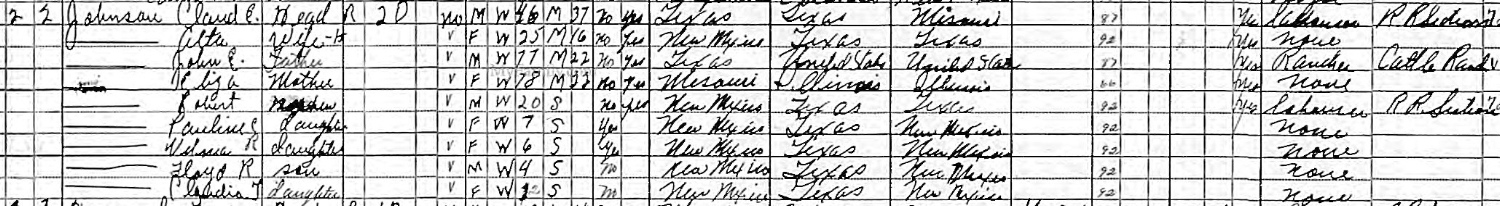 2 2 Johnson Claud E. Head R 20 no M W 46 M 37 No yes Texas Texas Missouri 87 yes Laborer R R Section
Wife-H V F W 25 M 16 no yes New Mexico Texas Texas 92 yes none
John E. Father V M W 77 M 22 no yes Texas United States United States 87 yes Rancher Cattle Ranch
Eliza Mother V F W 78 M no yes Missouri Illinois Illinois 66 none
Robert V M W 20 S no yes New Mexico Texas Texas 92 yes Laborer R R Section
Pauline J Daughter V F W 7 S yes New Mexico Texas New Mexico 92 none
R Daughter V F W 6 S yes New Mexico Texas New Mexico 92 none
Floyd R son V M W 4 S no New Mexico Texas New Mexico 92 none
Claudia F Daughter V F W S no New Mexico Texas New Mexico 92 none